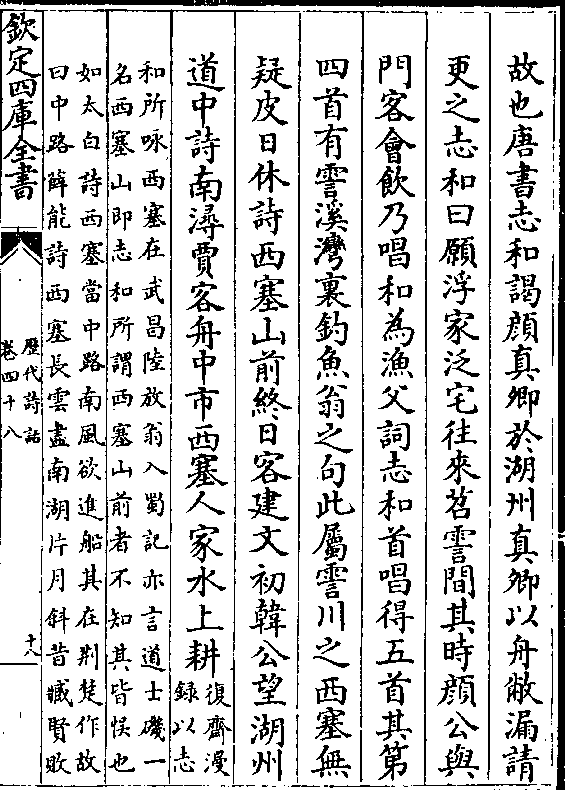 故也唐書志和謁顔真卿於湖州真卿以舟敝漏請
更之志和曰願浮家泛宅往來苕霅間其時顔公與
門客會飲乃唱和為漁父詞志和首唱得五首其第
四首有霅溪灣裏釣魚翁之句此屬霅川之西塞無
疑皮日休詩西塞山前終日客建文初韓公望湖州
道中詩南潯賈客舟中市西塞人家水上耕
復齋漫
録以志
和所咏西塞在武昌陸放翁入蜀記亦言道士磯一
名西塞山即志和所謂西塞山前者不知其皆悮也
如太白詩西塞當中路南風欲進船其在荆楚作故
曰中路薛能詩西塞長雲盡南湖片月斜昔臧賢敗
欽定四庫全書
歷代詩話
卷四十八
十八